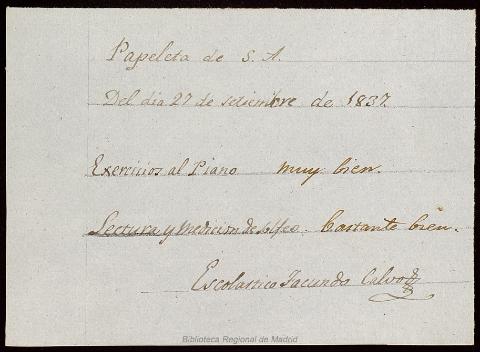 Papeleta de S. A.
Del dia 27 de setiembre de 1837
Exercicios al Piano muy bien.
Lectura y Medicion de solfeo. bastante bien.
Escolastico Facundo Calvo
Biblioteca Regional de Madrid